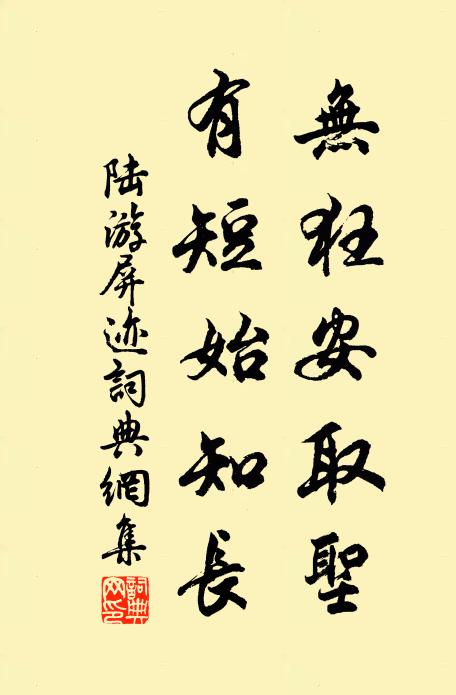 無狂安取聖
有短始知長
陆游屏迹詞典網集
詞典網印